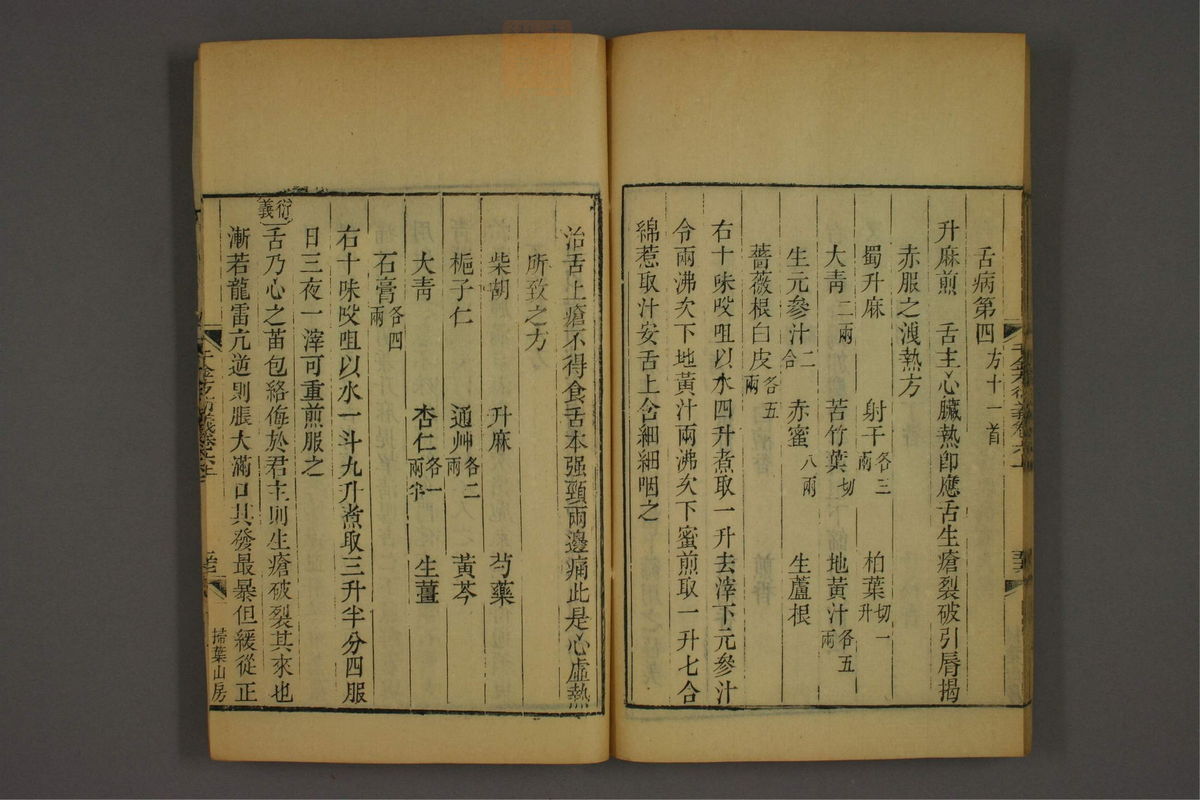 舌病第四方十一首
升麻煎　舌主心臟熱卽應舌生瘡裂破引脣揭
赤服之洩熱方
蜀升麻　射干各三兩　柏葉切一升
大青二兩　苦竹葉切　地黃汁各五兩
生元參汁二合　赤蜜八兩　生蘆根
薔薇根白皮各五兩
右十味㕮咀以水四升煮取一升去滓下元參汁
令兩沸次下地黃汁兩沸次下蜜煎取一升七合
綿惹取汁安舌上含細細咽之
治舌上瘡不得食舌本强頸兩邊痛此是心虛熱
所致之方
柴胡　升麻　芍藥
梔子仁　通艸各二兩　黃芩
大青　杏仁各一兩半　生薑
石膏各四兩
右十味㕮咀以水一斗九升煮取三升半分四服
日三夜一滓可重煎服之
衍義
舌乃心之苗包絡侮於君主則生瘡破裂其來也
漸若龍雷亢逆則脹大滿口其發最暴但緩從正
掃葉山房